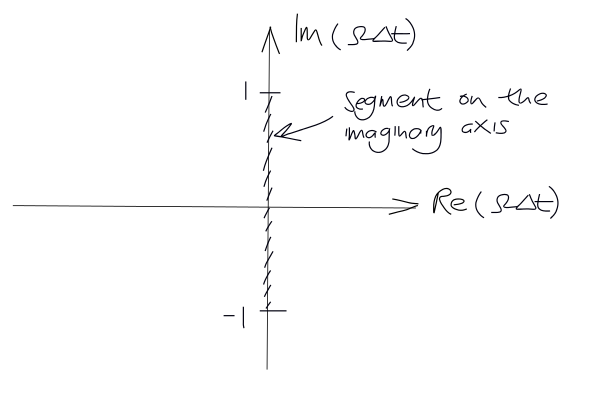 Im(ΩΔt)
1
Segment on the
imaginary axis
Re(ΩΔt)
-1